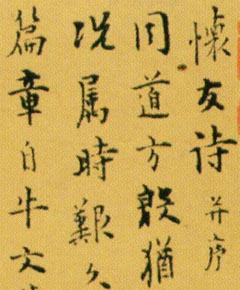 懷友詩并序
同道方殷猶
况属時艱久
篇章自牛文